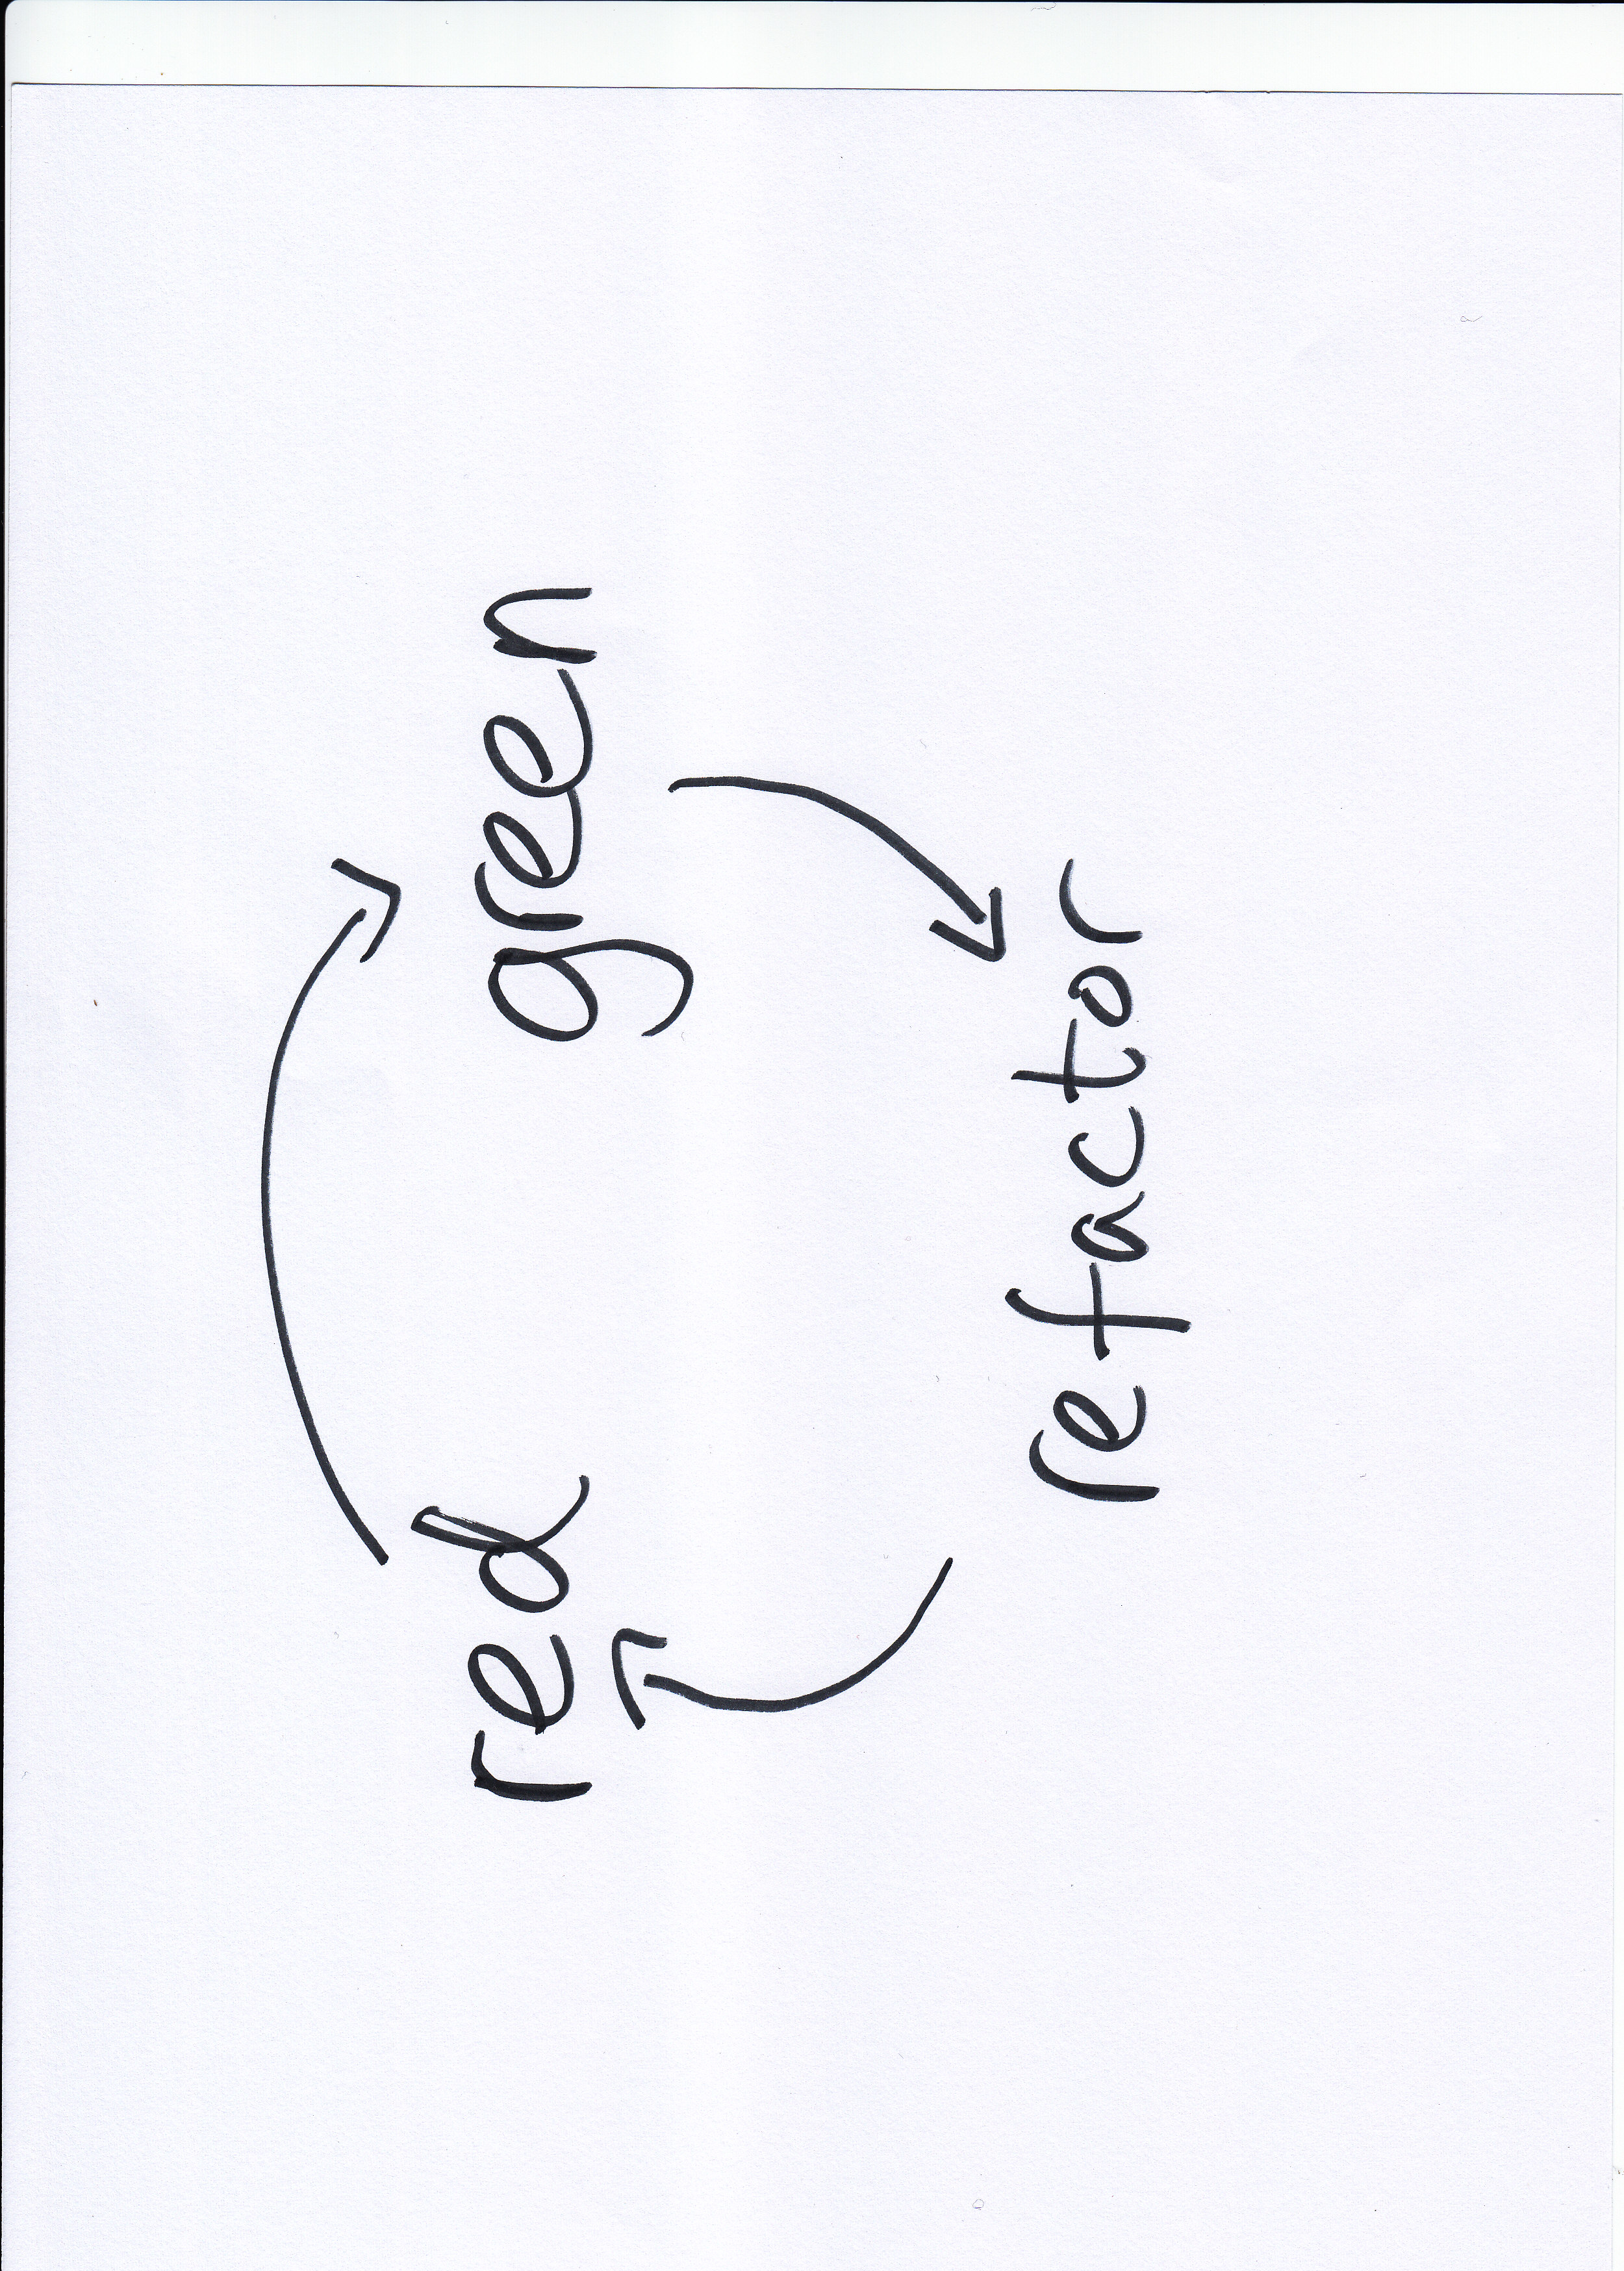 red
green
refactor